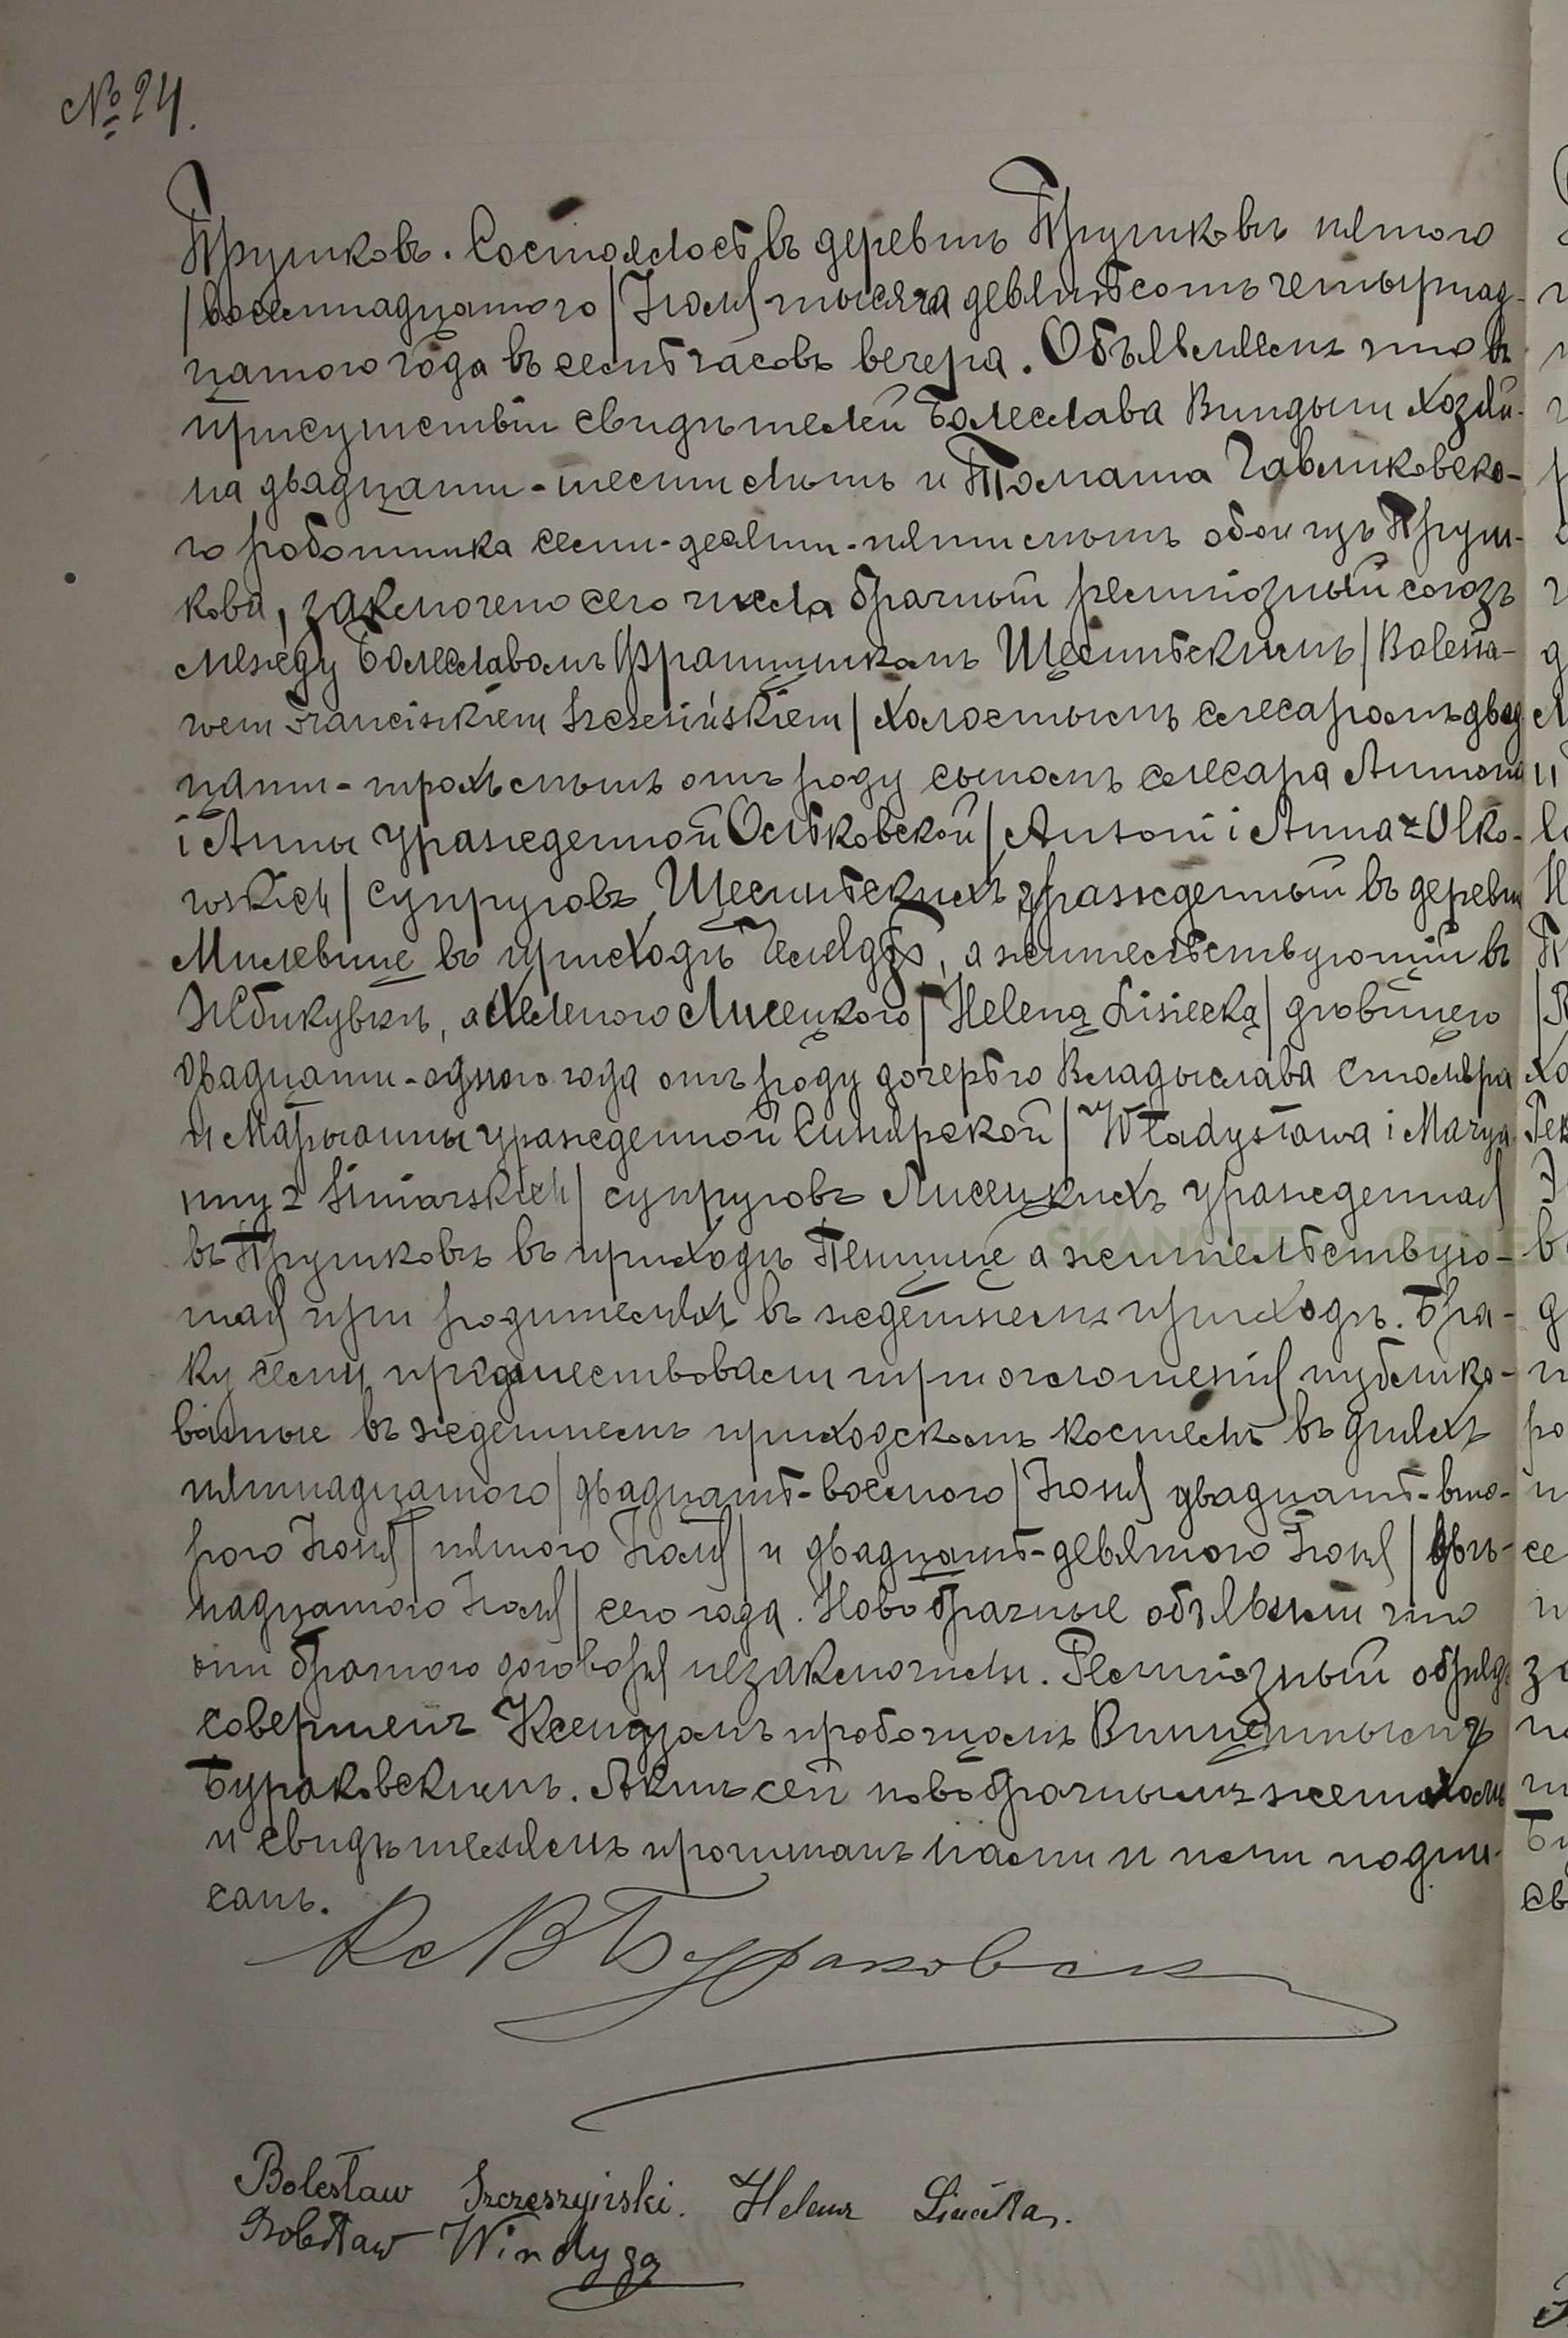 № 24.
Прушковъ. Состоялось въ деревнѣ Прушковѣ пятого
/восемнадцатого/ Іюля тысяча девятьсотъ четырнад-
цатого года въ семь часовъ вечера. Объявляемъ что въ
присутствіи свидѣтелей Болеслава Виндыги хозяи-
на двадцати-шести лѣтъ и Томаша Гавликовско-
го работника семи-десяти-пяти лѣтъ обои изъ Пруш-
кова, заключено сего числа брачный религіозный союзъ
между Болеславомъ Францишкомъ Щесиньскимъ /Bolesła-
wem Franciszkiem Szczesińskiem/ холостымъ слесаромъ двад
цати-трохъ лѣтъ отъ роду сыномъ слесара Антона
і Анны урожденной Ольковской /Antoni i Anna z Olko-
wskich/ супруговъ Щесиньскихъ урожденный въ деревни
Милевице въ приходѣ Челядзь, а жительствующій въ
Жбикувкѣ, а Хеленою Лисецкого /Heleną Lisiecką/ дѣвицего
двадцати-одного года отъ роду дочерьго Владыслава столяра
и Марыанны урожденной Синярской /Władysława i Marya
nny z Siniarskich/ супруговъ Лисецкихъ урожденная
въ Прушковѣ въ приходѣ Пенцице а жительствую-
щая при родителяхъ въ здешнемъ приходѣ. Бра-
ку сему предшествовали три оглошенія публико-
ванные въ здешнемъ приходскомъ костелѣ въ дняхъ
пятнадцатого /двадцать-восмого/ Іюня двадцать-вто-
рого Іюня /пятого Іюля/ и двадцать-девятого Іюня /двѣ-
надцатого Іюля/ сего года. Новобрачные объявили что
они брачного договоря незаключили. Религіозный обряд
совершенъ Ксендзомъ пробощомъ Винцентымъ
Бураковскимъ. Актъ сей новобрачнымъ женихомъ
и свидѣтелемъ прочитанъ нами и ними подпи-
санъ.
Кс В Бураковски
Bolesław Szczeszyński. Helena Lisiecka.
Bolesław Windyga